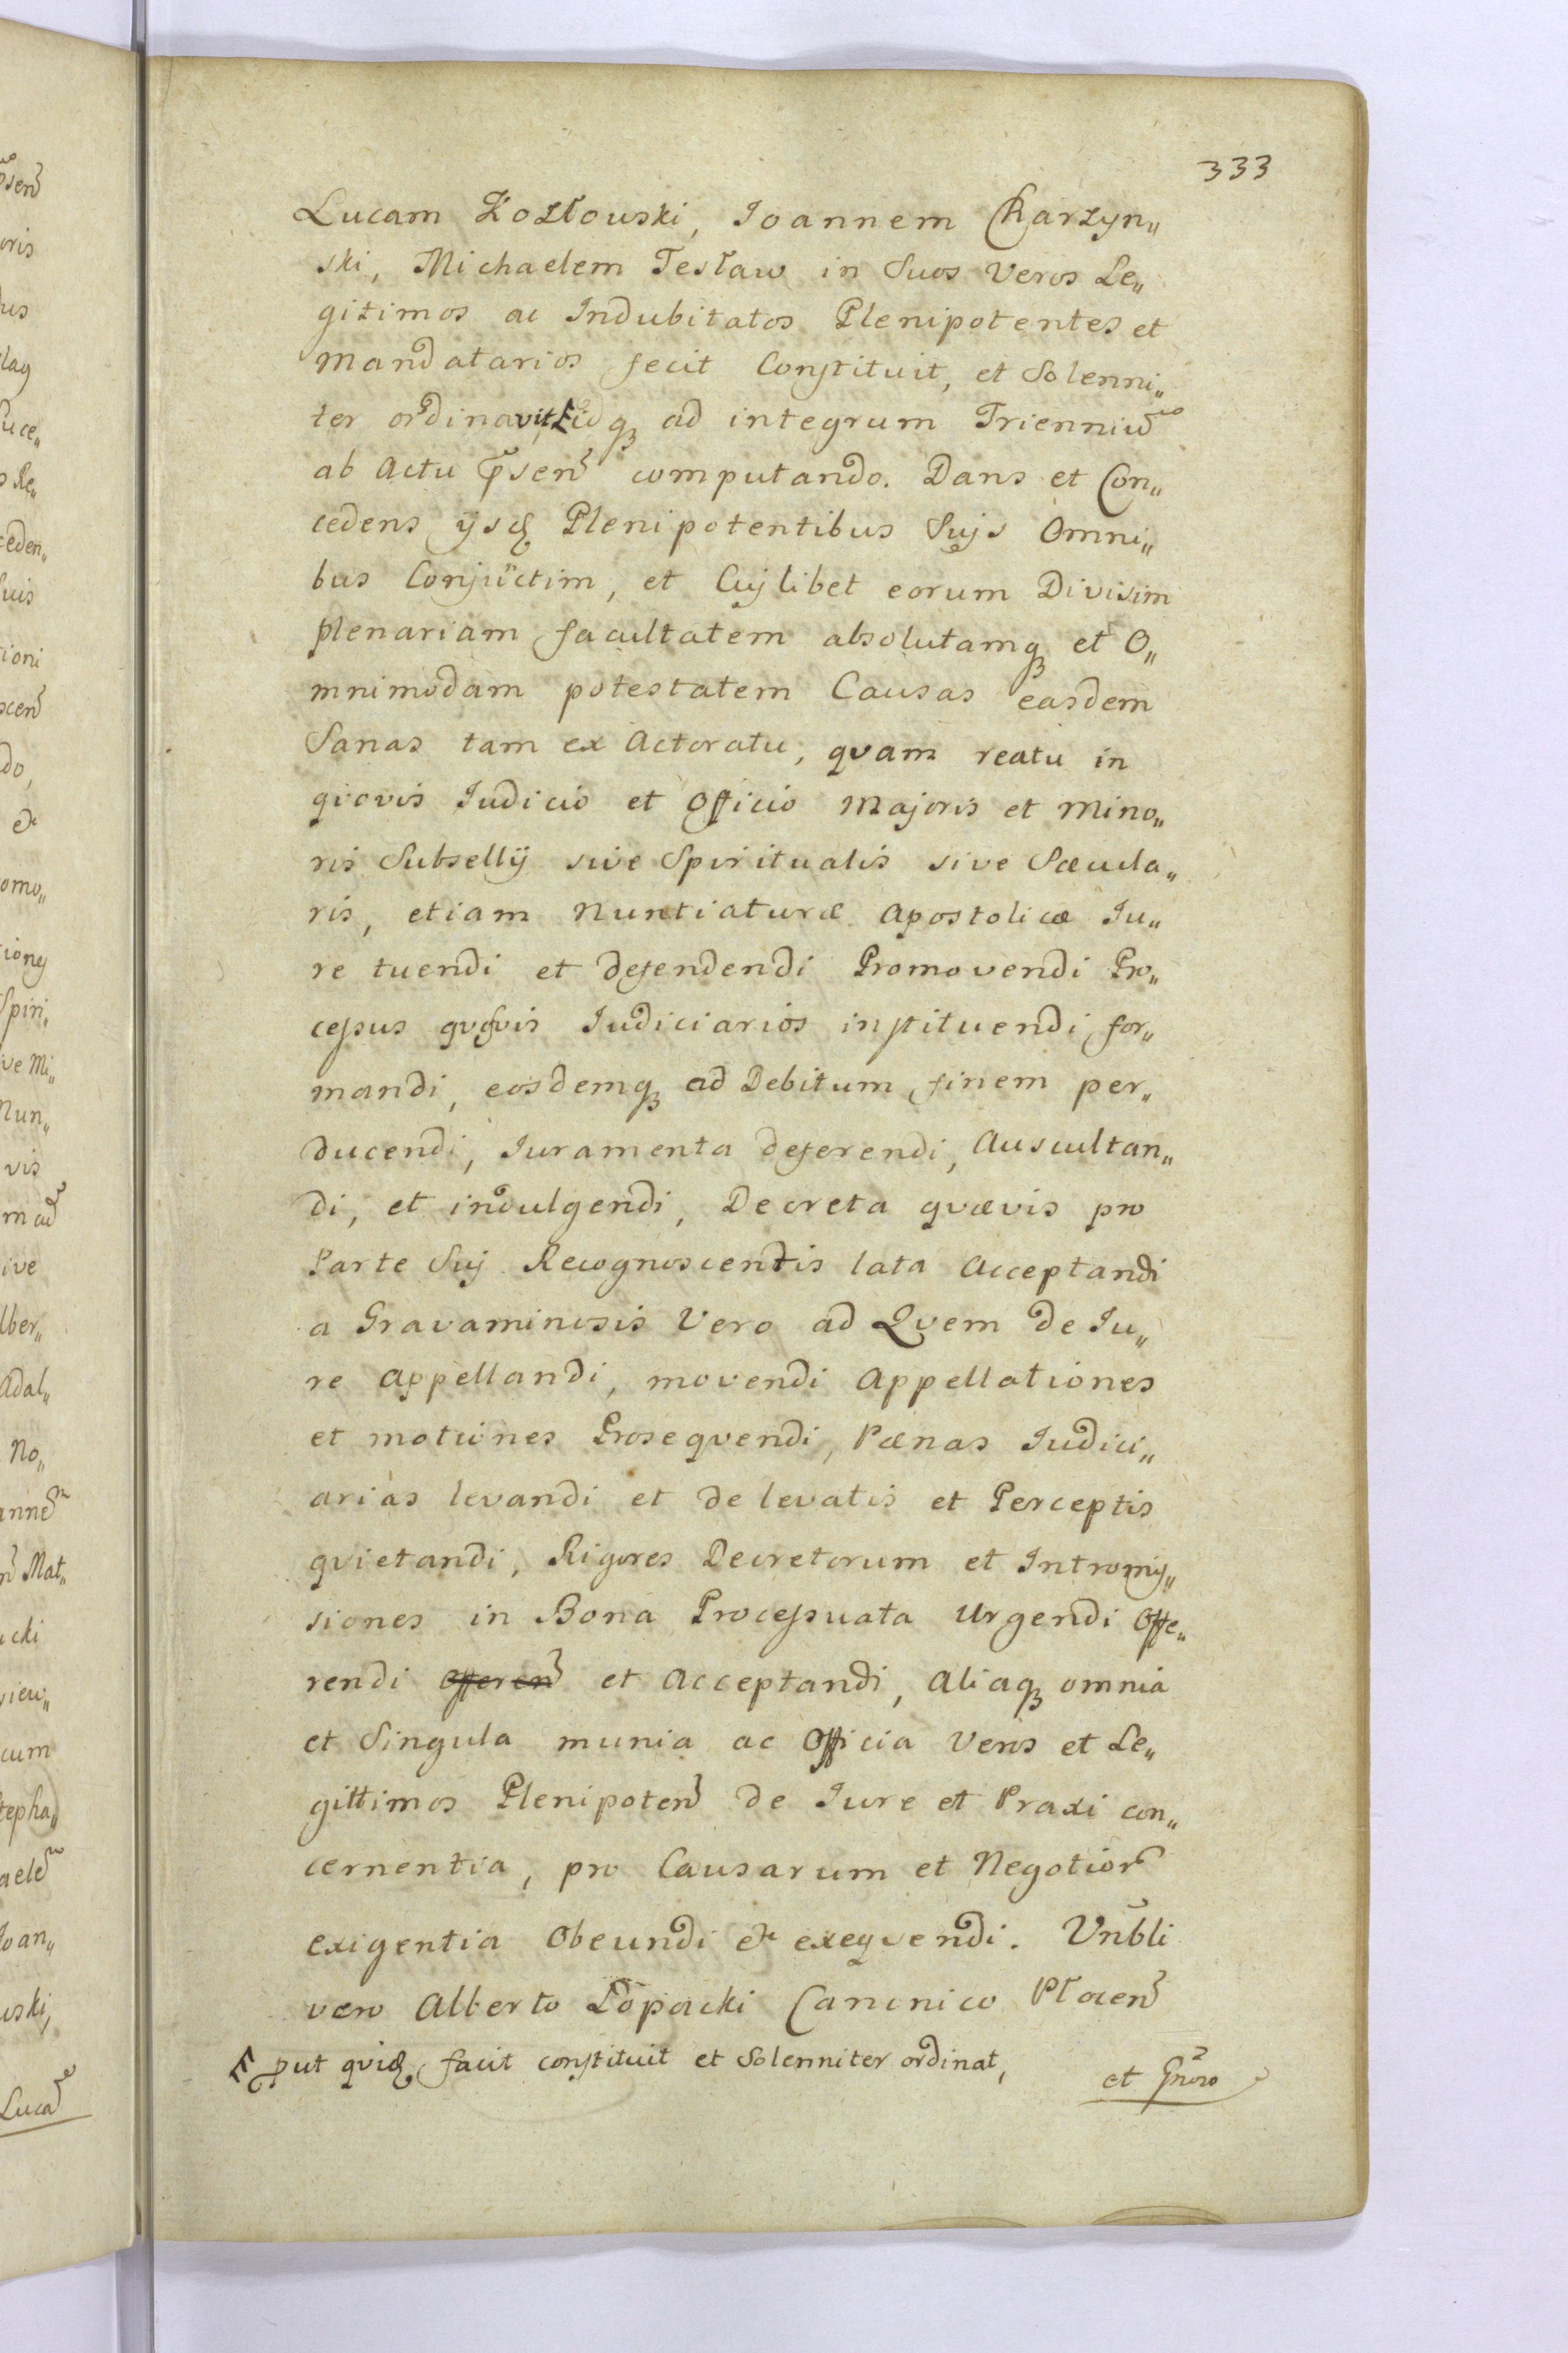 333
Lucam Kozłouski, Joannem Charzyn„
ski, Michaelem Tesław in Suos Veros Le„
gitimos ac Indubitatos Plenipotentes et
Mandatarios fecit Constituit, et Solenni„
ter ordinavit, idq̃ ad integrum Trienniũ
ab Actu p̃sen̄ computando. Dans et Con„
cedens ijsd̃ Plenipotentibus Suis Omni„
bus Conjũctim, et Cujlibet eorum Divisim
plenariam facultatem absolutamq̃ et O„
mnimodam potestatem Causas easdem
Sanas tam ex Actoratu, quam reatu in
qvovis Judicio et Officio Majoris et Mino„
ris Subsellij sive Spiritualis sive Sæcula„
ris, etiam Nuntiaturæ Apostolicæ Ju„
re tuendi et defendendi Promovendi Pro„
cessus qvosvis Judiciarios instituendi for„
mandi, eosdemq̃ ad Debitum finem per„
ducendi, Juramenta deferendi, Auscultan„
di, et indulgendi, Decreta qvævis pro
Parte Suj Recognoscentis lata Acceptandi
a Gravaminosis Vero ad Qvem de Ju„
re Appellandi, movendi Appellationes
et motiones Proseqvendi, Pænas Judici„
arias levandi et de levatis et Perceptis
qvietandi, Rigores Decretorum et Intromis„
siones in Bona Processuata Urgendi Offe„
rendi offeren̄ et Acceptandi, Aliaq̃ omnia
et Singula munia ac Officia Veros et Le„
gittimos Plenipoten̄ de Jure et Praxi con„
cernentia, pro Causarum et Negotior̃
exigentia Obeundi & exeqvendi. Vn̄bli
vero Alberto Łopacki Canonico Płocen̄
put qvid̃ facit constituit et Solenniter ordinat,
et Gn̄roso